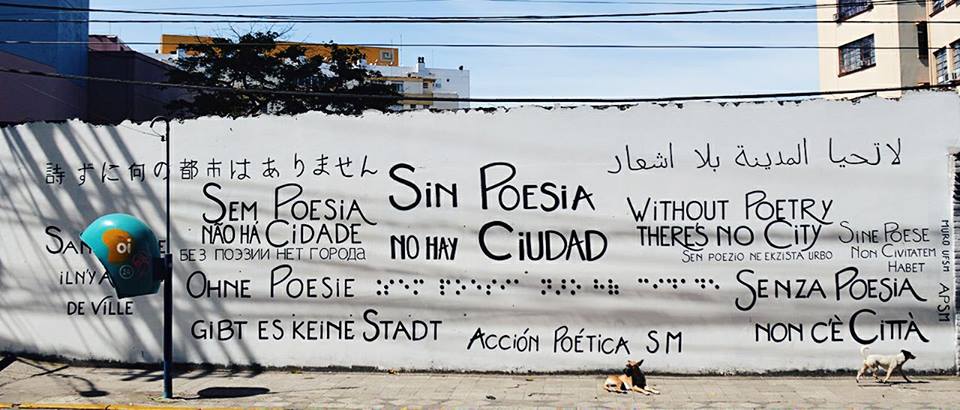 詩ずに何の都市はありません
لا تحيا المدينة بلا اشعار
Sin Poesia
no hay Ciudad
Sem Poesia
não há Cidade
Without Poetry
There's no City
Sine Poese
Non Civitatem
Habet
Без поэзии нет города
Sen poezio ne ekzista urbo
il n'y a
de ville
oi
Ohne Poesie
gibt es keine Stadt
Senza Poesia
non c'è Città
Acción Poética SM
MURO UFSM
APSM